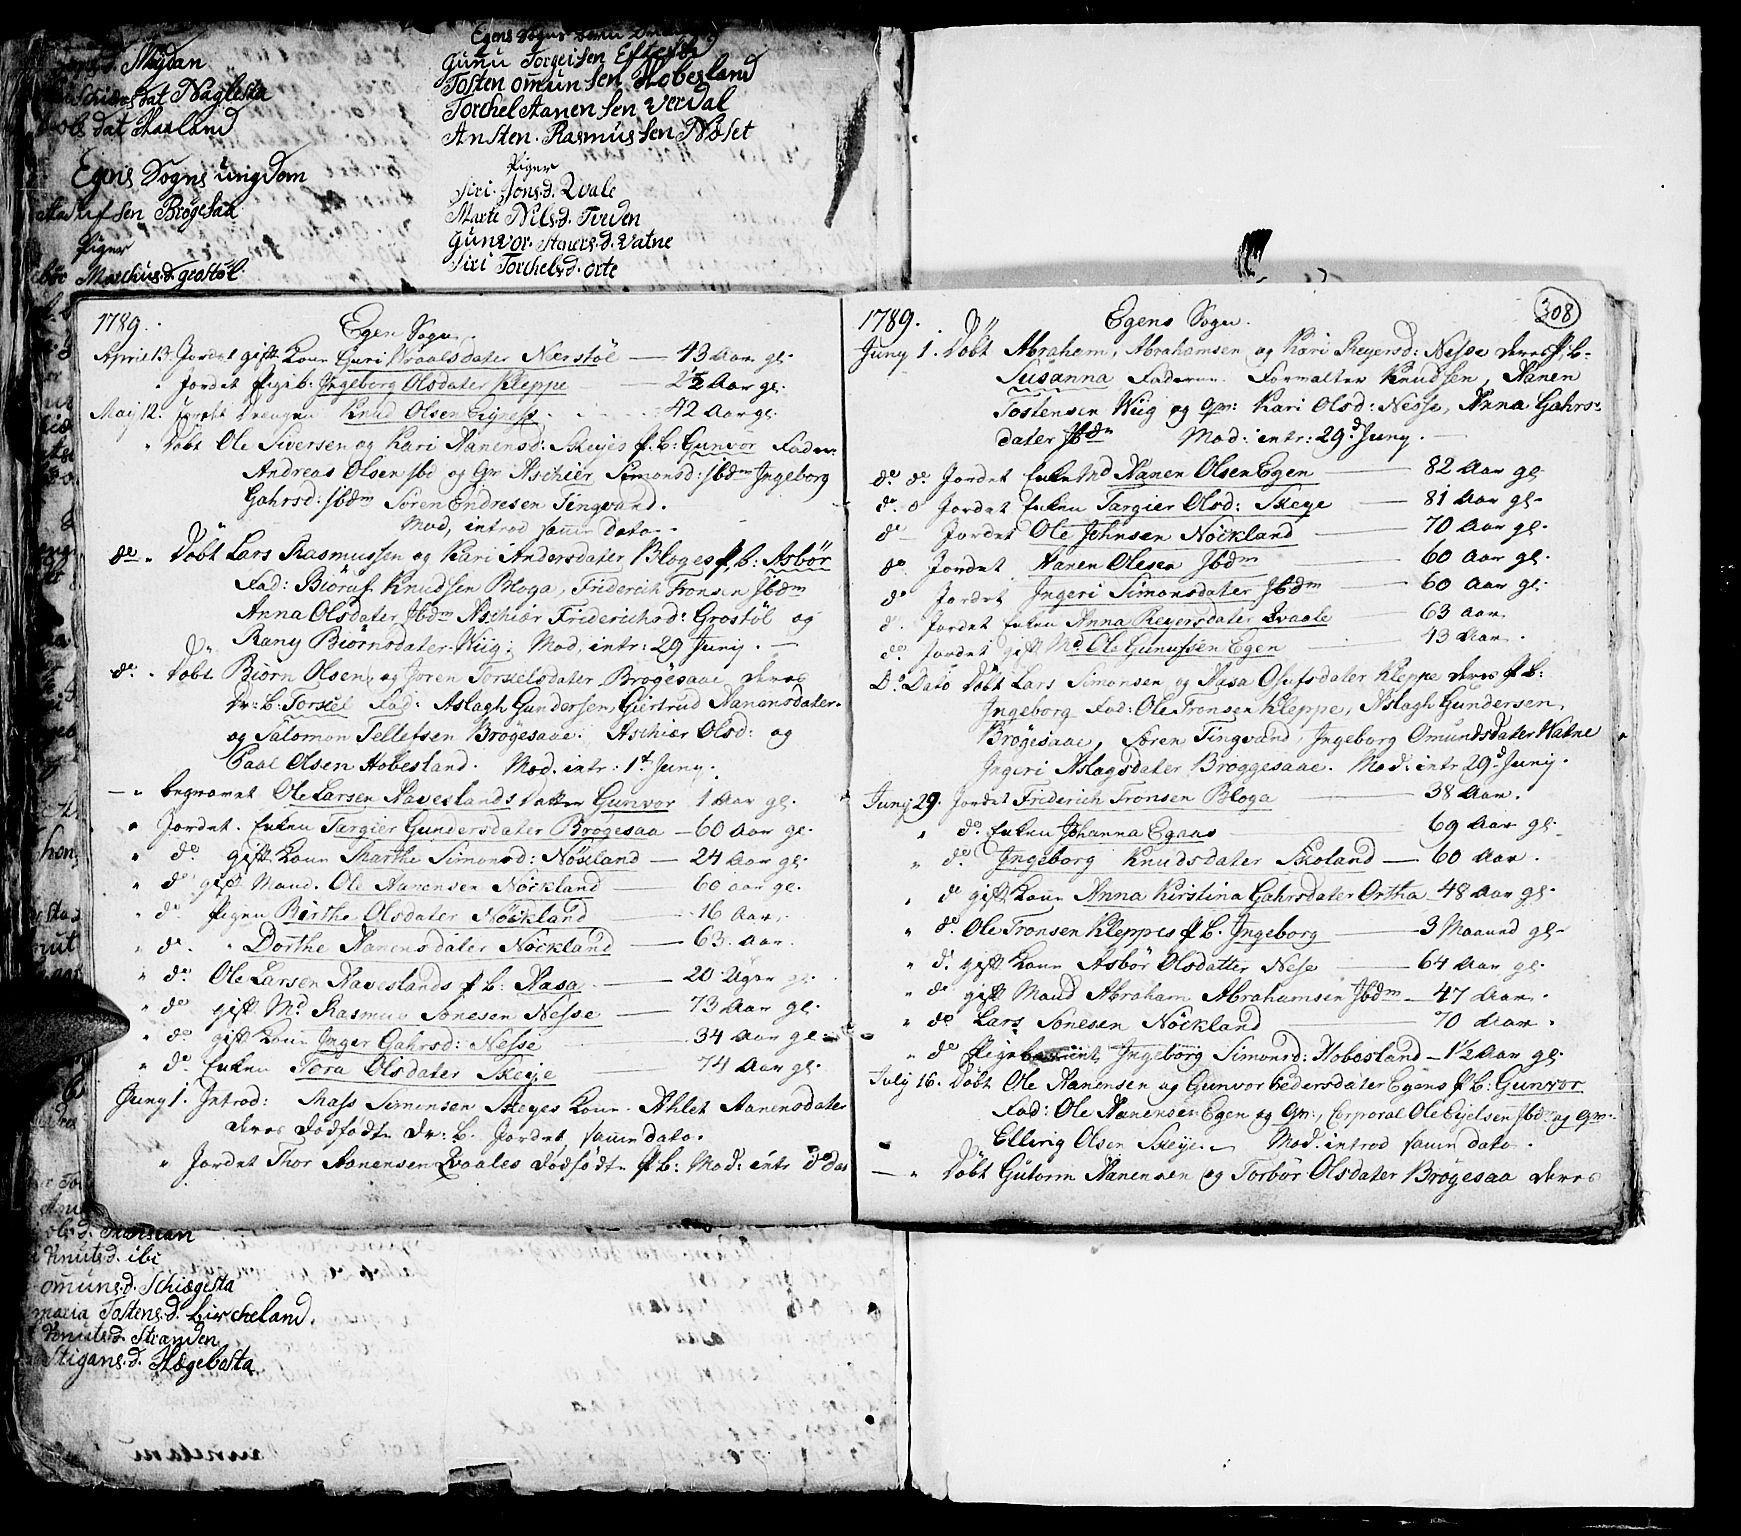 Nÿdan
Naglesta
dat Haaland
Egens Sogns ungdom
sen Brøgesaa
Piger
Marchus.d. grostøl
Gunu Torgeisen Eftest
Tosten omunsen Hobesland
Torchel Aanensen Verdal
Ansten. Rasmussen Nøset
Piger
Siri. Jons.d. Qvale
Marte Nils.d. Tveden
Gunvor. Staners.d. Vatne
Siri Torchels.d. orte
1789. Egen Sogn.
April 13. Jordet gift Kone Guri Noaalsdater Nærstøl — 43 Aar gl.
" Jordet Pigeb. Ingeborg Olsdater Kleppe — 2½ Aar gl.
May 12. Jordet Drengen Knud Olsen Eigness. — 42 Aar gl.
" Døbt Ole Siversen og Kari Aanensd: Skeyes p.b: Gunvor Fadere
Andreas Olsen ibd og Gr Aschier Simonsd: ibdm Ingeborg
Gahrsd: ibdm Søren Endresen Tingvand.
Mod, introd samme Dato.
do " Døbt Lars Rasmussen og Kari Andersdater Bloges p.b: Asbør
Fad: Biøruf Knudsen Bloga, Friderich Tronsen Ibdm
Anna Olsdater Ibdm Aschier Friderichsd: Grostøl og
Rany Biørnsdater Wiig: Mod, intr: 29 Junij. —
do. . Døbt Biørn Olsen, og Joren Torkielsdater Brøgesaae deres
Dr: B. Torkiel Fad: Aslagh Gundersen, Giertrud Aanensdater.
og Salomon Tellefsen Brøgesaae. Aschier Olsd: og
Paal Olsen Hobesland. Mod. intr: 1t Juny.
— " begravet Ole Larsen Haveslands Datter Gunvor 1 Aar gl.
" Jordet. Enken Targier Gundersdater Brøgesaa — 60 Aar gl.
" do. gift Kone Marthe Simonsd: Nöckland — 24 Aar gl.
" do gift Mand. Ole Aanensen Nöckland — 60 aar gl.
" do. Pigen Birthe Olsdater Nöckland — 16 Aar.
" do. " Dorthe Aanensdater Nöckland — 63. Aar.
" do Ole Larsen Haveslands p b: Aasa — 20 Uger gl.
" do gift Md Rasmus Tonesen Nesse — 73 Aar gl.
" do. gift Kone Inger Gahrsd: Nesse — 34 Aar gl.
" do. Enken Tora Olsdater Skeije — 74 Aar gl.
Juny 1. Introd: Mass Simensen Skeyes Kone. Ahlet Aanensdater
deres Dødfødte Dr: B. Jordet samme dato.
" Jordet Thor Aanensen Qvaales dødfødte p b: Mod: intr do Dato
1789. Egens Sogn. 308
Juny 1. Døbt Abraham, Abrahamsen og Kari Reyersd: Nesse deres p.b-
Susanna Faderne Formalter Knudsen, Aanen
Tostensen Wiig og Gvr: Kari Olsd: Nesse, Anna Gahrs-
dater Ibdm Mod: intr: 29d Juny. —
do. do. Jordet Enke Md Aanen Olsen Egen — 82 Aar gl.
do. o Jordet Enken Targier Olsd: Skeye — 81 Aar gl.
do Jordet Ole Johnsen Nöckland — 70 Aar gl.
do. Jordet Aanen Olesen Ibdm — 60 Aar gl.
do Jordet Ingeri Simonsdater Ibdm — 60 Aar gl.
d. Jordet Enken Anna Reyersdater Qvaale — 63 Aar
do. Jordet gift Md Ole Gunufsen Egen — 43 Aar.
Do Dato Døbt Lars Simonsen og Aasa Olufsdater Kleppe deres p b:
Ingeborg Fad: Ole Tronsen Kleppe, Aslagh Gundersen,
Brøgesaae, Søren Tingvand, Ingeborg Omundsdater Watne
Ingeri Aslagsdater Brøggesaae. Mod: intr 29d Junij.
Junij 29. Jordet Friderich Tronsen Bloga — 38 Aar.
" do. Enken Johanna Egaas — 69 Aar gl.
" do. Ingeborg Knudsdater Skoland — 60 Aar.
" do gift Kone Anna Kirstina Gahrsdater Ortha — 48 Aar gl.
" do. Ole Tronsen Kleppes p b. Ingeborg — 3 Maaned gl.
" d. gift Kone Asbör Olsdatter Nese — 64 Aar gl.
" do gift Mand Abraham Abrahamsen Ibdm — 47 Aar.
" do Lars Tonesen Nöckland — 70 Aar.
" do Pige Ingeborg Simonsd: Hobesland — 1½ Aar gl.
July 16. Døbt Ole Aanensen og Gunvor Pedersdater Egens p b: Gunvor
Fad: Ole Aanensen Egen og Gvr:, Corporal Ole Eyelsen ibdm og Gvr.
Elling Olsen Skeije. — Mod: introd samme dato.
— " Døbt Gutorm Aanensen og Torbør Olsdater Brøgesaa deres
ols.d.
Knuts.d. ibi
omuns.d. Schiægesta
maria Tostens.d. birkeland.
Knuts.d. Stranden
Stigans.d. Hægebosta